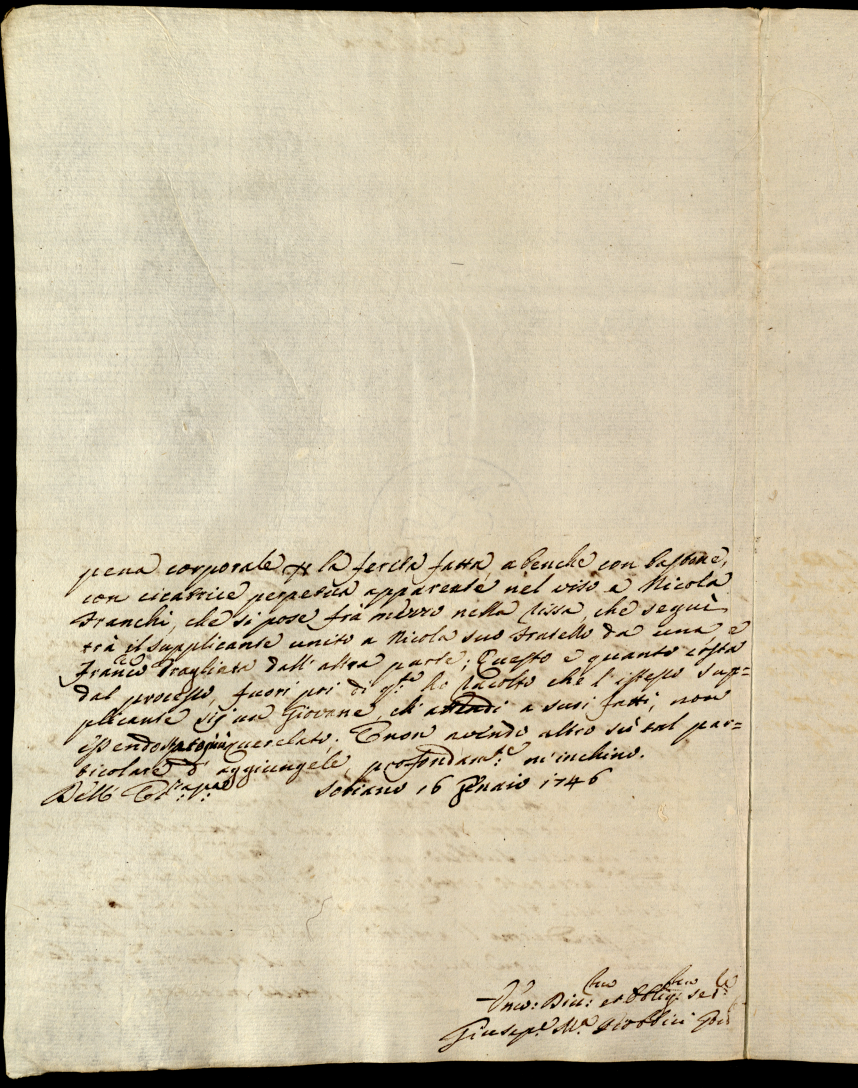 pena corporale per la ferita fatta, abenche con bastone,
con cicatrice perpetua apparente nel viso a Nicola
Franchi, che si pose frà mezzo nella rissa, che seguì
trà il supplicante unito a Nicola suo Fratello da una, e
Franc.co Tragliata dall'altra parte; Questo è quanto costa
dal processo, fuori poi di q.to hò racolto che l'istesso sup=
plicante sij un Giovane, ch'attendi a suoi fatti, non
essendo querelato. E non avendo altro sù tal par=
ticolare d'aggiungele profondam.te m'inchino.
Sobiano 16 Genaio 1746
Dell'
Um.o: Div.mo: et Obblig.mo Se.re
Giusep.e M.a Gio